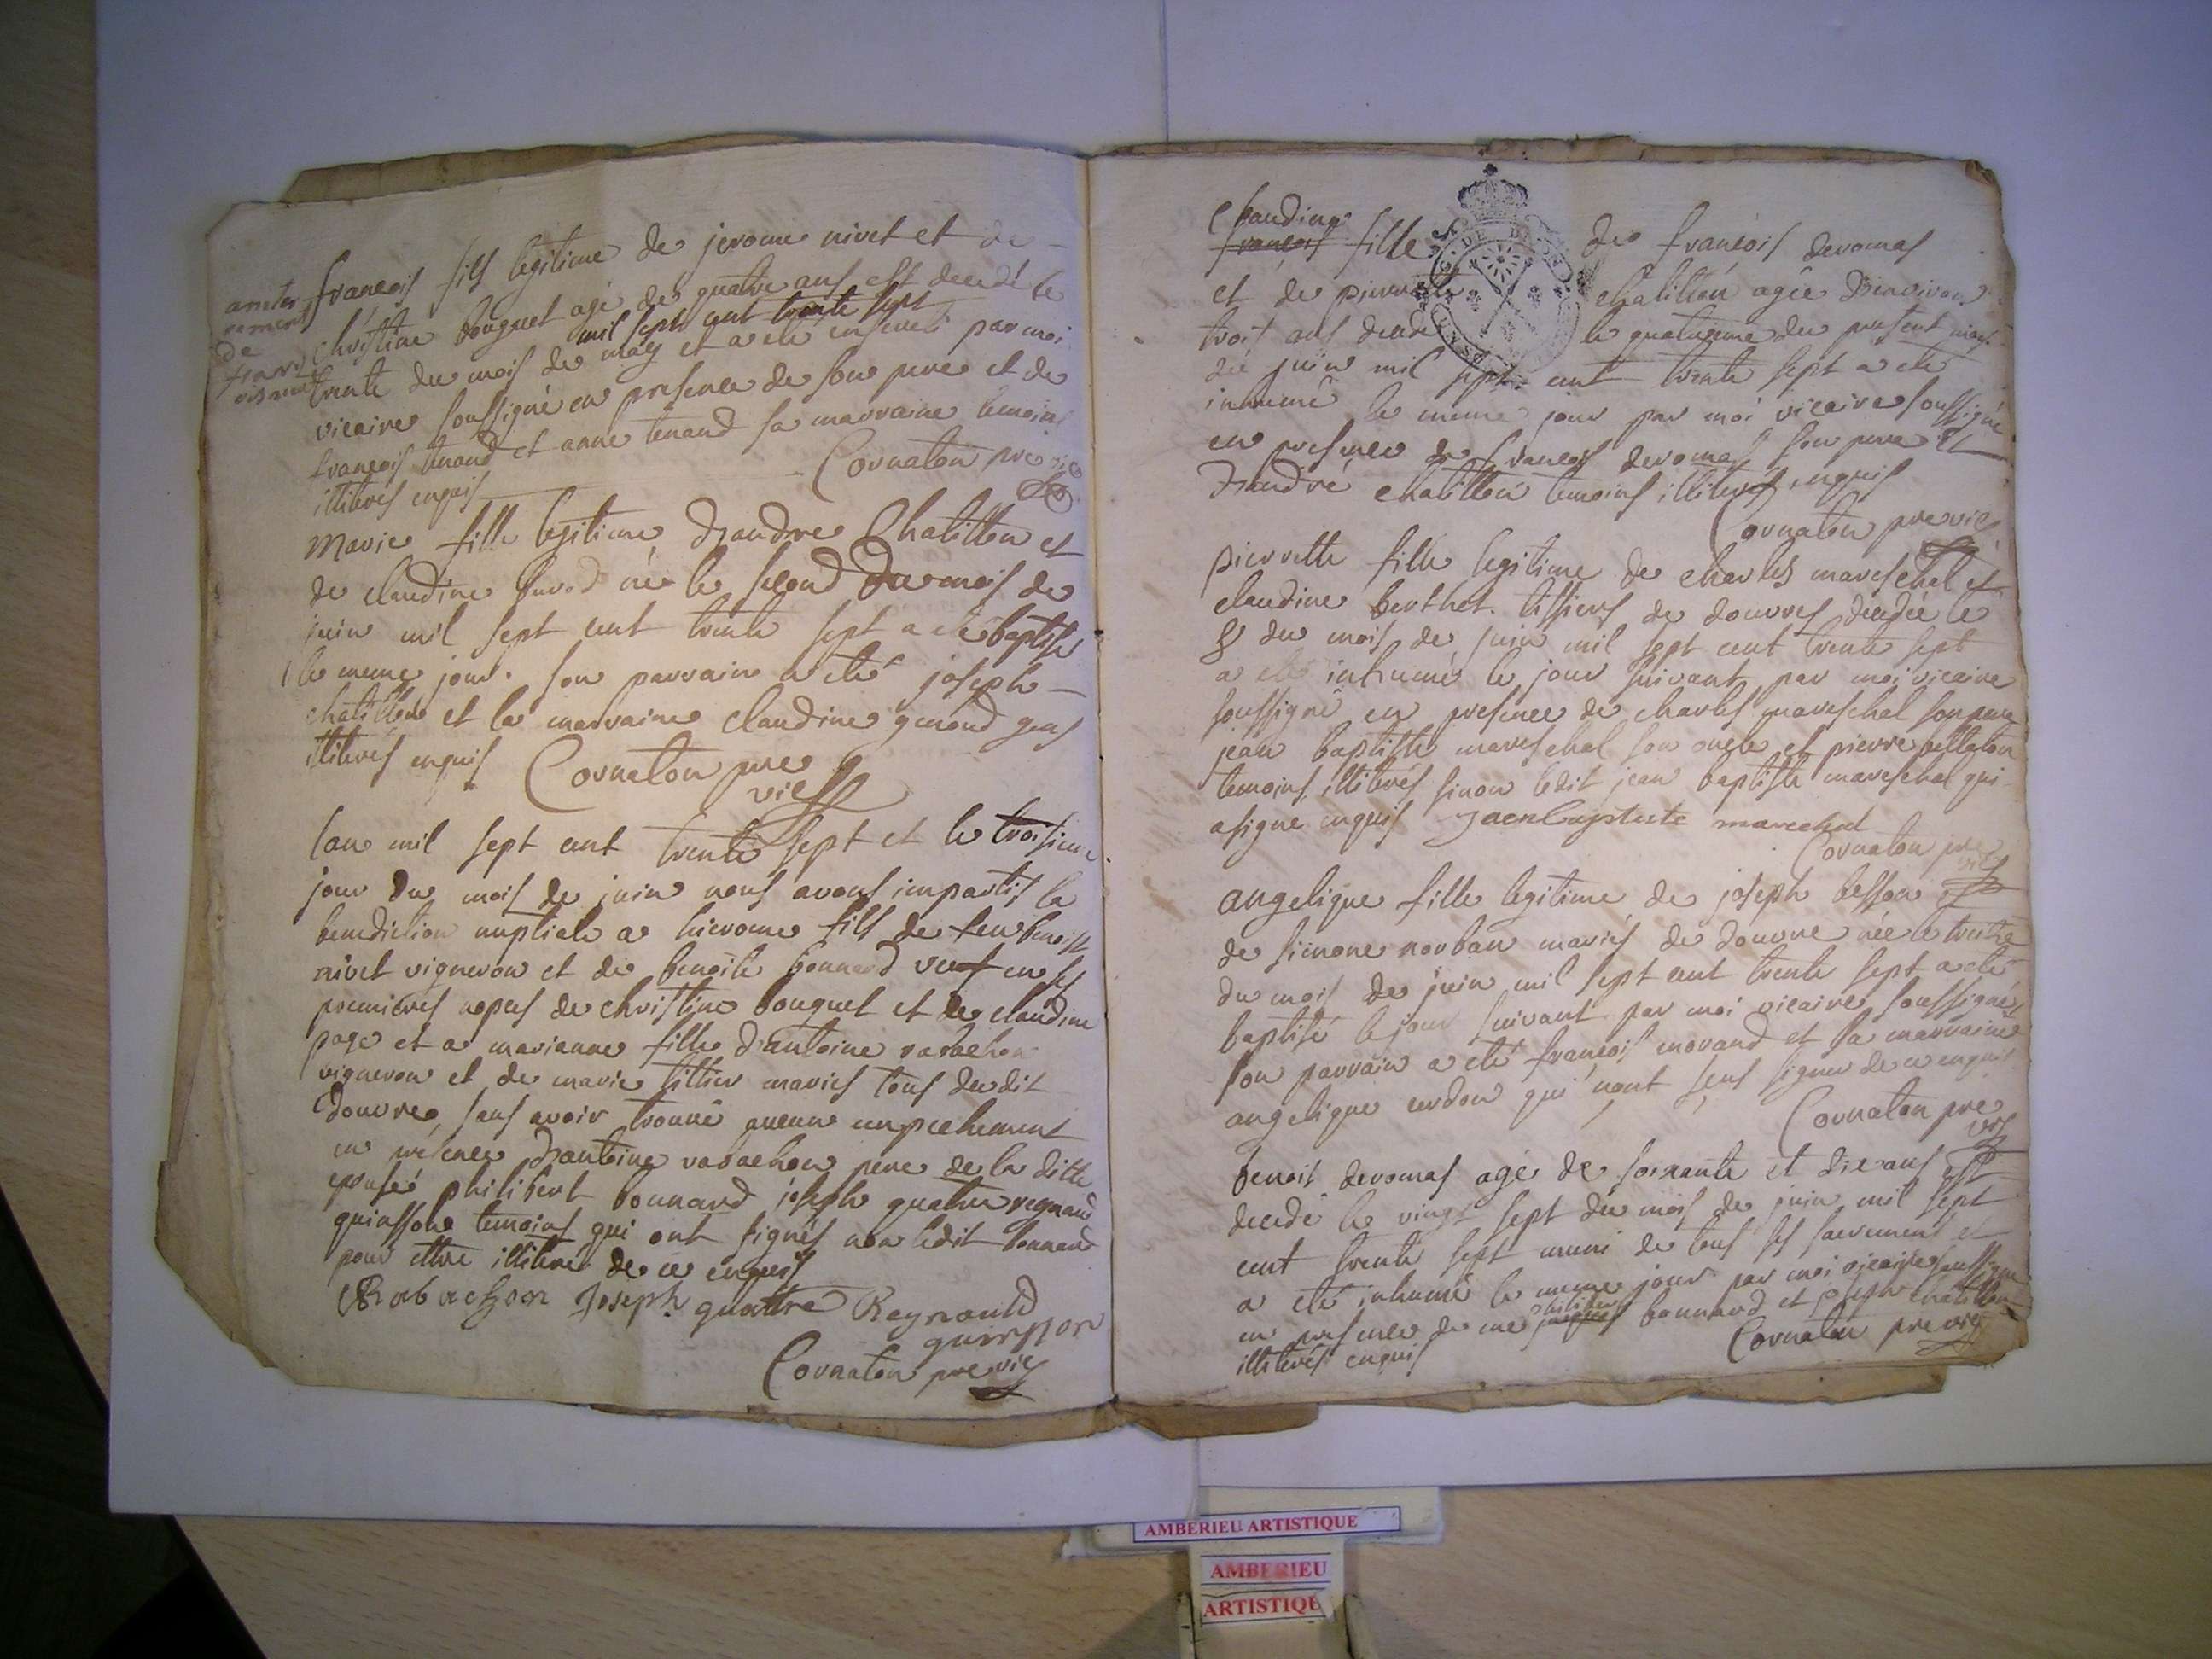 françois fils legitime de jerome nivet et de
christine bouguet agé de quatre ans est decedé le
mil sept cent trente sept
trente du mois de may et a eté enseveli par moi
vicaire soussigné en presence de son pere et de
françois tenand et anne tenand sa marraine temoins
illiterés enquis
Cornaton pre vic
Marie fille legitime d'andre Chatillon et
de claudine née le second du mois de
juin mil sept cent trente sept a eté baptisé
le meme jour. son parrain a eté joseph
chatillon et la marraine claudine genoud gens
illiterés enquis Cornaton pre
vic
lan mil sept cent trente sept et le troisieme
jour du mois de juin nous avons impartis la
benediction nuptiale a hierome fils de feu benoist
nivet vigneron et de benoite bonnard veuf en ses
premieres nopces de christine bouguet et de claudine
page et a marianne fille d'antoine rabachon
vigneron et de marie tillier mariés tous dudit
Douvre, sans avoir trouvé aucun empechement
en presence d'antoine rabachon pere de la ditte
epousée philibert bonnard joseph quatre regnaud
quinsson temoins qui ont signés non ledit bonnard
pour ettre illiteré de ce enquis
Rabachon Joseph quattre Reynauld
quinsson
Cornaton pre vic
Claudine
françois fille de françois deromas
et de pierrette chatillon agée d'environ
trois ans decedé le quatorzieme du present mois
de juin mil sept cent trente sept a eté
inhumé le meme jour par moi vicaire soussigné
en presence de françois deromas son pere et
d'andré chatillon temoins illiterés enquis
Cornaton pre vic
pierrette fille legitime de charles mareschal et
claudine berthet tissiers de douvres decedée le
8 du mois de juin mil sept cent trente sept
a eté inhumé le jour suivant par moi vicaire
soussigné en presence de charles mareschal son pere
jean baptiste mareschal son oncle et pierre bellaton
temoins illiterés sinon ledit jean baptiste mareschal qui
a signe enquis Jaen baptiste marechal
Cornaton pre
vic
angelique fille legitime de joseph besson et
de simone norban mariés de douvre née le treize
du mois de juin mil sept cent trente sept a eté
baptisé le jour suivant par moi vicaire soussigné
son parrain a eté françois morand et sa marraine
angelique curdon qui n'ont sçus signer de ce enquis
Cornaton pre
vic
benoit deromas agé de soixante et dix ans est
decedé le vingt sept du mois de juin mil sept
cent trente sept muni de tous ses sacrements et
a eté inhumé le meme jour par moi vicaire soussigné
philibert
en presence de me bonnard et joseph chatillon
illiterés enquis
Cornaton pre vic
AMBERIEU ARTISTIQUE
AMBERIEU
ARTISTIQUE